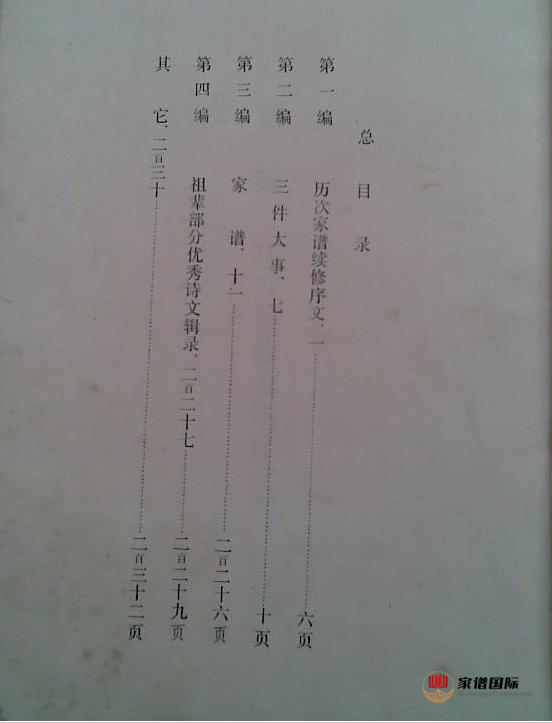 总目录
第一编 历次家谱续修序文、一……六页
第二编 三件大事、七……十页
第三编 家谱、十一……二百二十六页
第四编 祖辈部分优秀诗文辑录、二百二十七……二百二十九页
其它、二百三十……二百三十二页
家谱国际